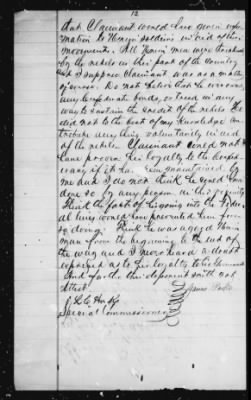 12
that Claimant would have given infor
mation to Union soldiers in aid of their
movements. All Union men were threatened
by the rebels in this part of the country
and I suppose Claimant was as a matter
of course. Do not believe that he ever owned
any Confederate bonds, or tried in any
way to sustain the credit of the rebels. He
did not to the best of my knowledge con
tribute any thing voluntarily in aid
of the rebels. Claimant could not
have proven his loyalty to the Confed
eracy if it had been required by
me and I do not think he could have
done so by any person in this vicinity
I think the fact of his going into the Feder
al lines would have prevented him from
so doing. I think he was a good Union
man from the beginning to the end of
the war and I never heard a doubt
expressed as to his loyalty to the Government
And further this deponent saith not
Attest
James
Special Commissioner